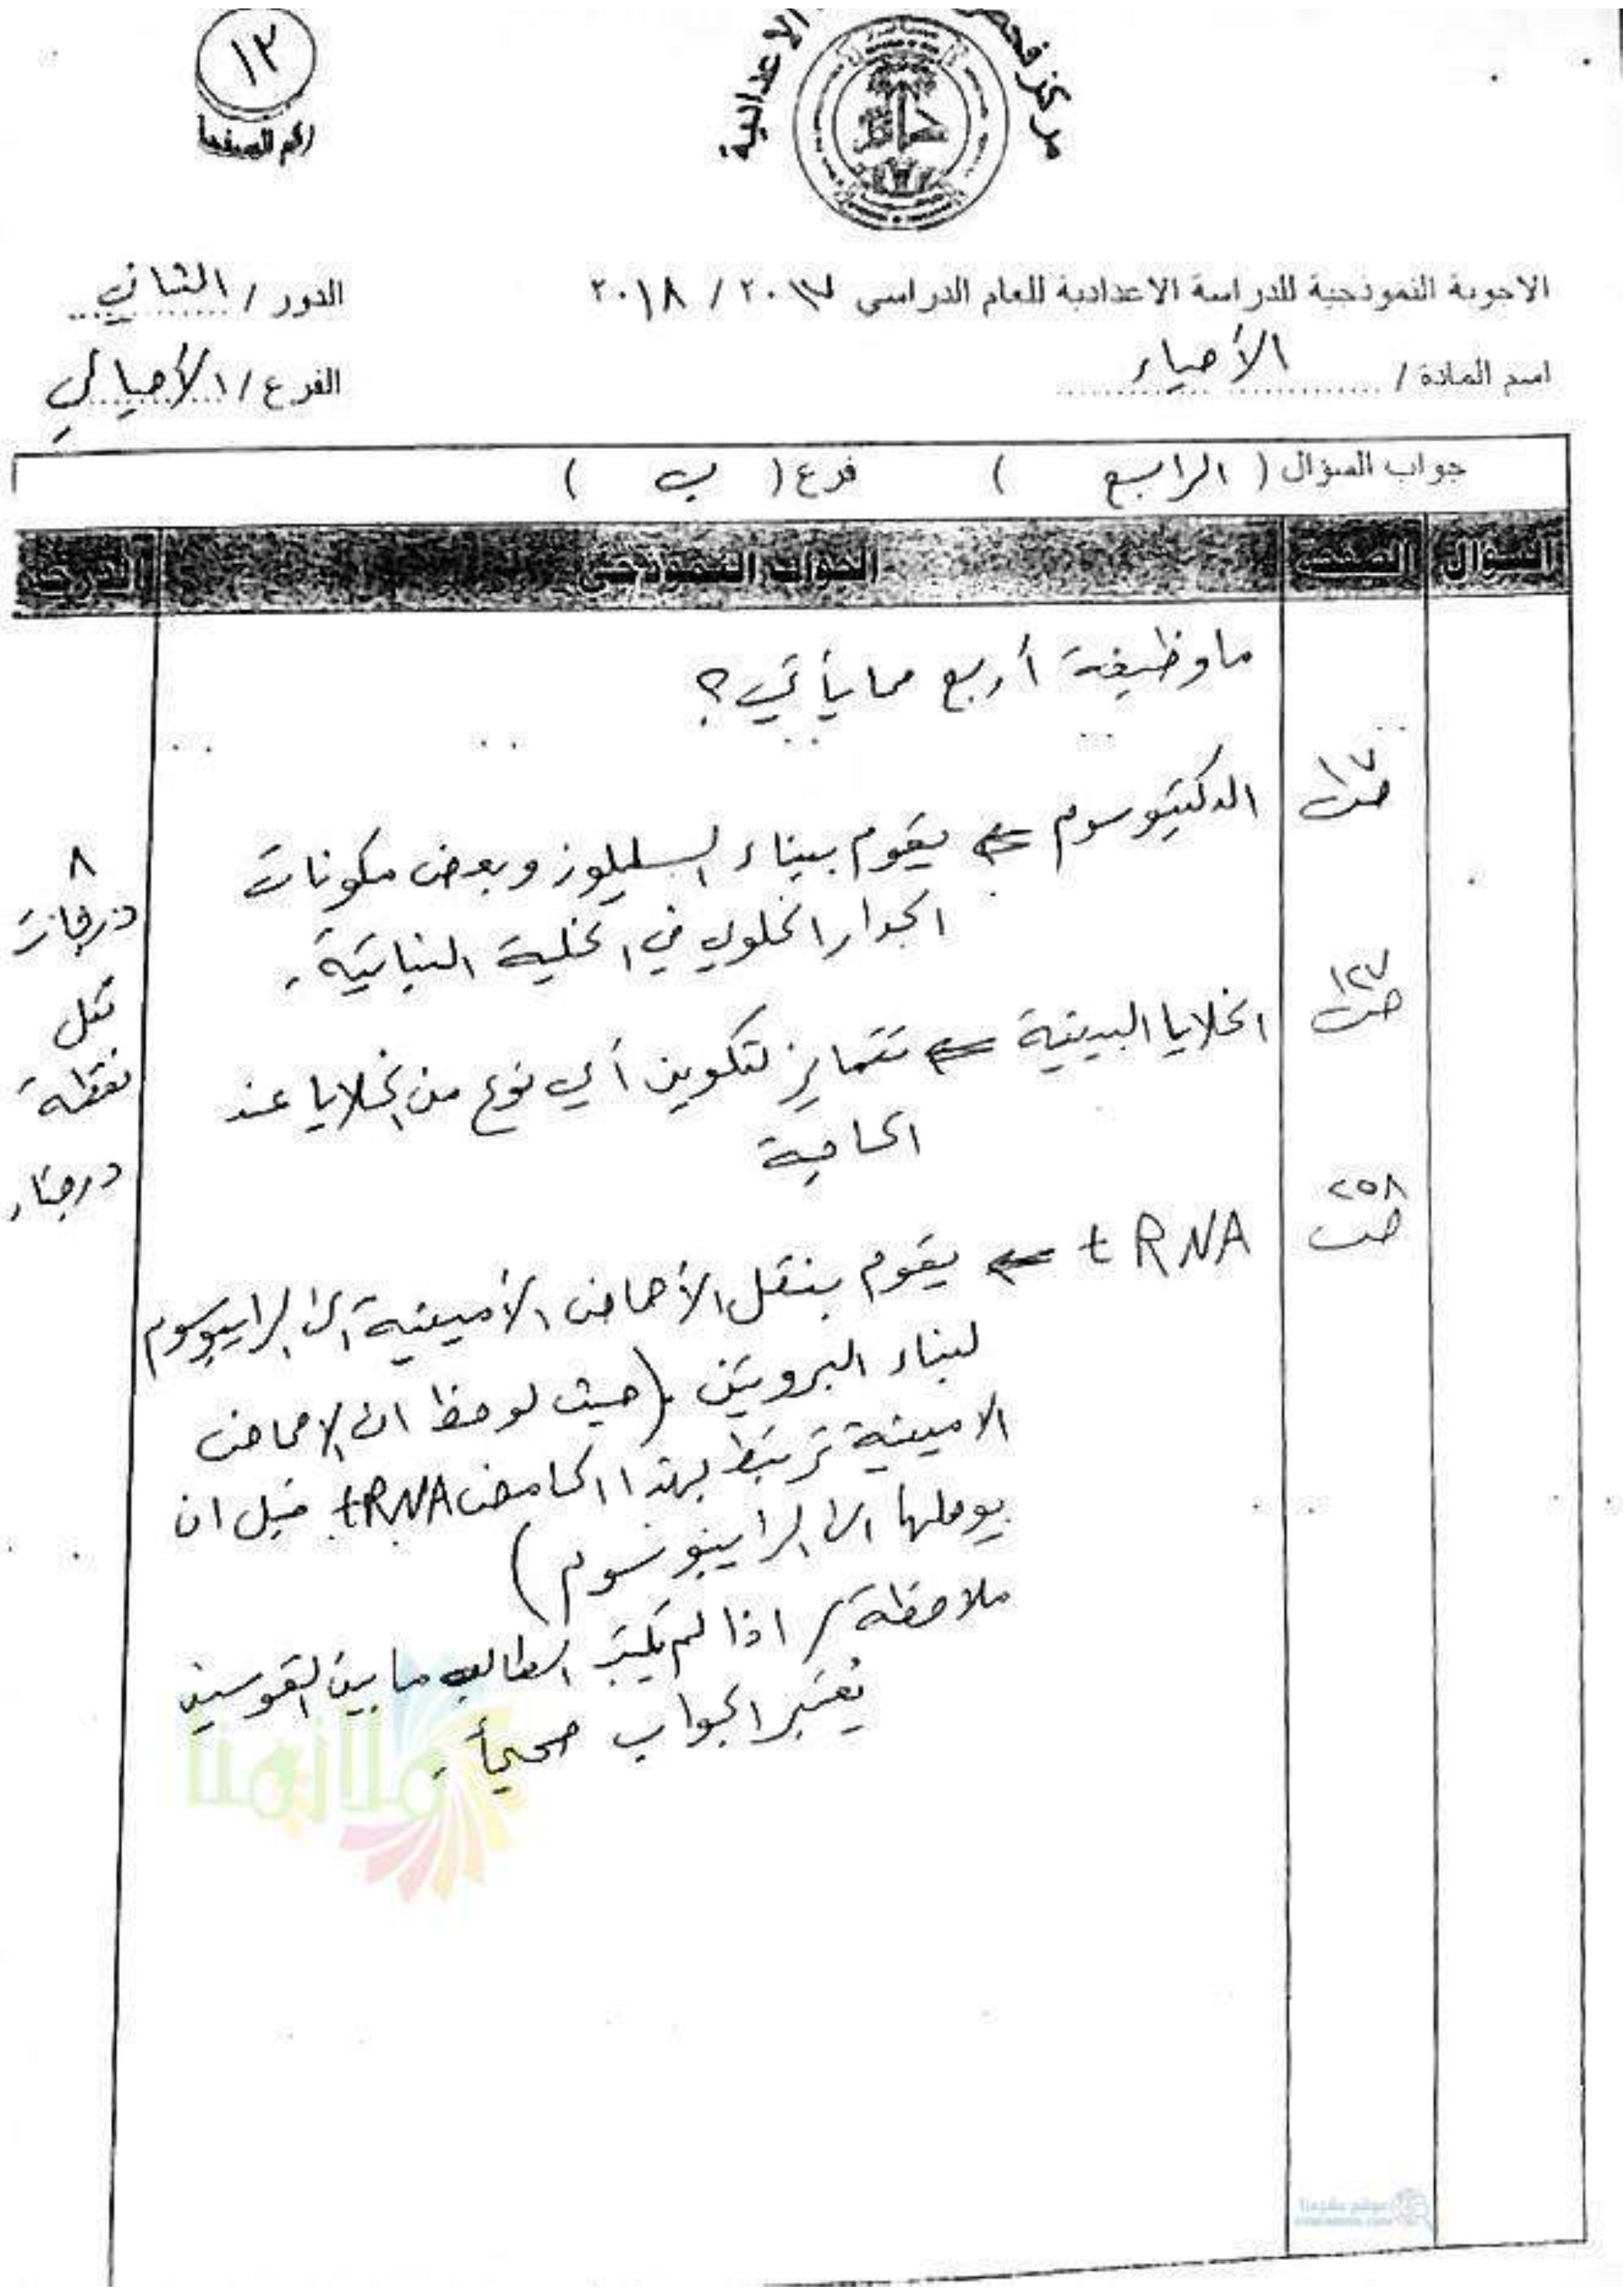 ١٢
رقم الصفحة
مركز فحص
الاعدادية
الاجوبة النموذجية للدراسة الاعدادية للعام الدراسي ٢٠١٧ / ٢٠١٨
الدور / الثاني
اسم المادة / الأحياء
الفرع / الأحيائي
جواب السؤال ( الرابع ) فرع ( ب )
السؤال الصفحة الجواب النموذجي الدرجة
ما وظيفة أربع مما يأتي؟
ص١٧
الدكتيوسوم ⇐ يقوم ببناء السليلوز وبعض مكونات
الجدار الخلوي في الخلية النباتية .
ص١٢٧
الخلايا البينية ⇐ تتمايز لتكوين أي نوع من الخلايا عند
الحاجة
ص٢٥٨
tRNA ⇐ يقوم بنقل الأحماض الأمينية الى الرايبوسوم
لبناء البروتين . (حيث لوحظ ان الاحماض
الامينية ترتبط بهذا الحامض tRNA قبل ان
يوصلها الى الرايبوسوم)
ملاحظة / اذا لم يكتب الطالب ما بين القوسين
يعتبر الجواب صحيحاً .
٨
درجات
لكل
نقطة
درجتان
ملازمنا
موقع ملازمنا